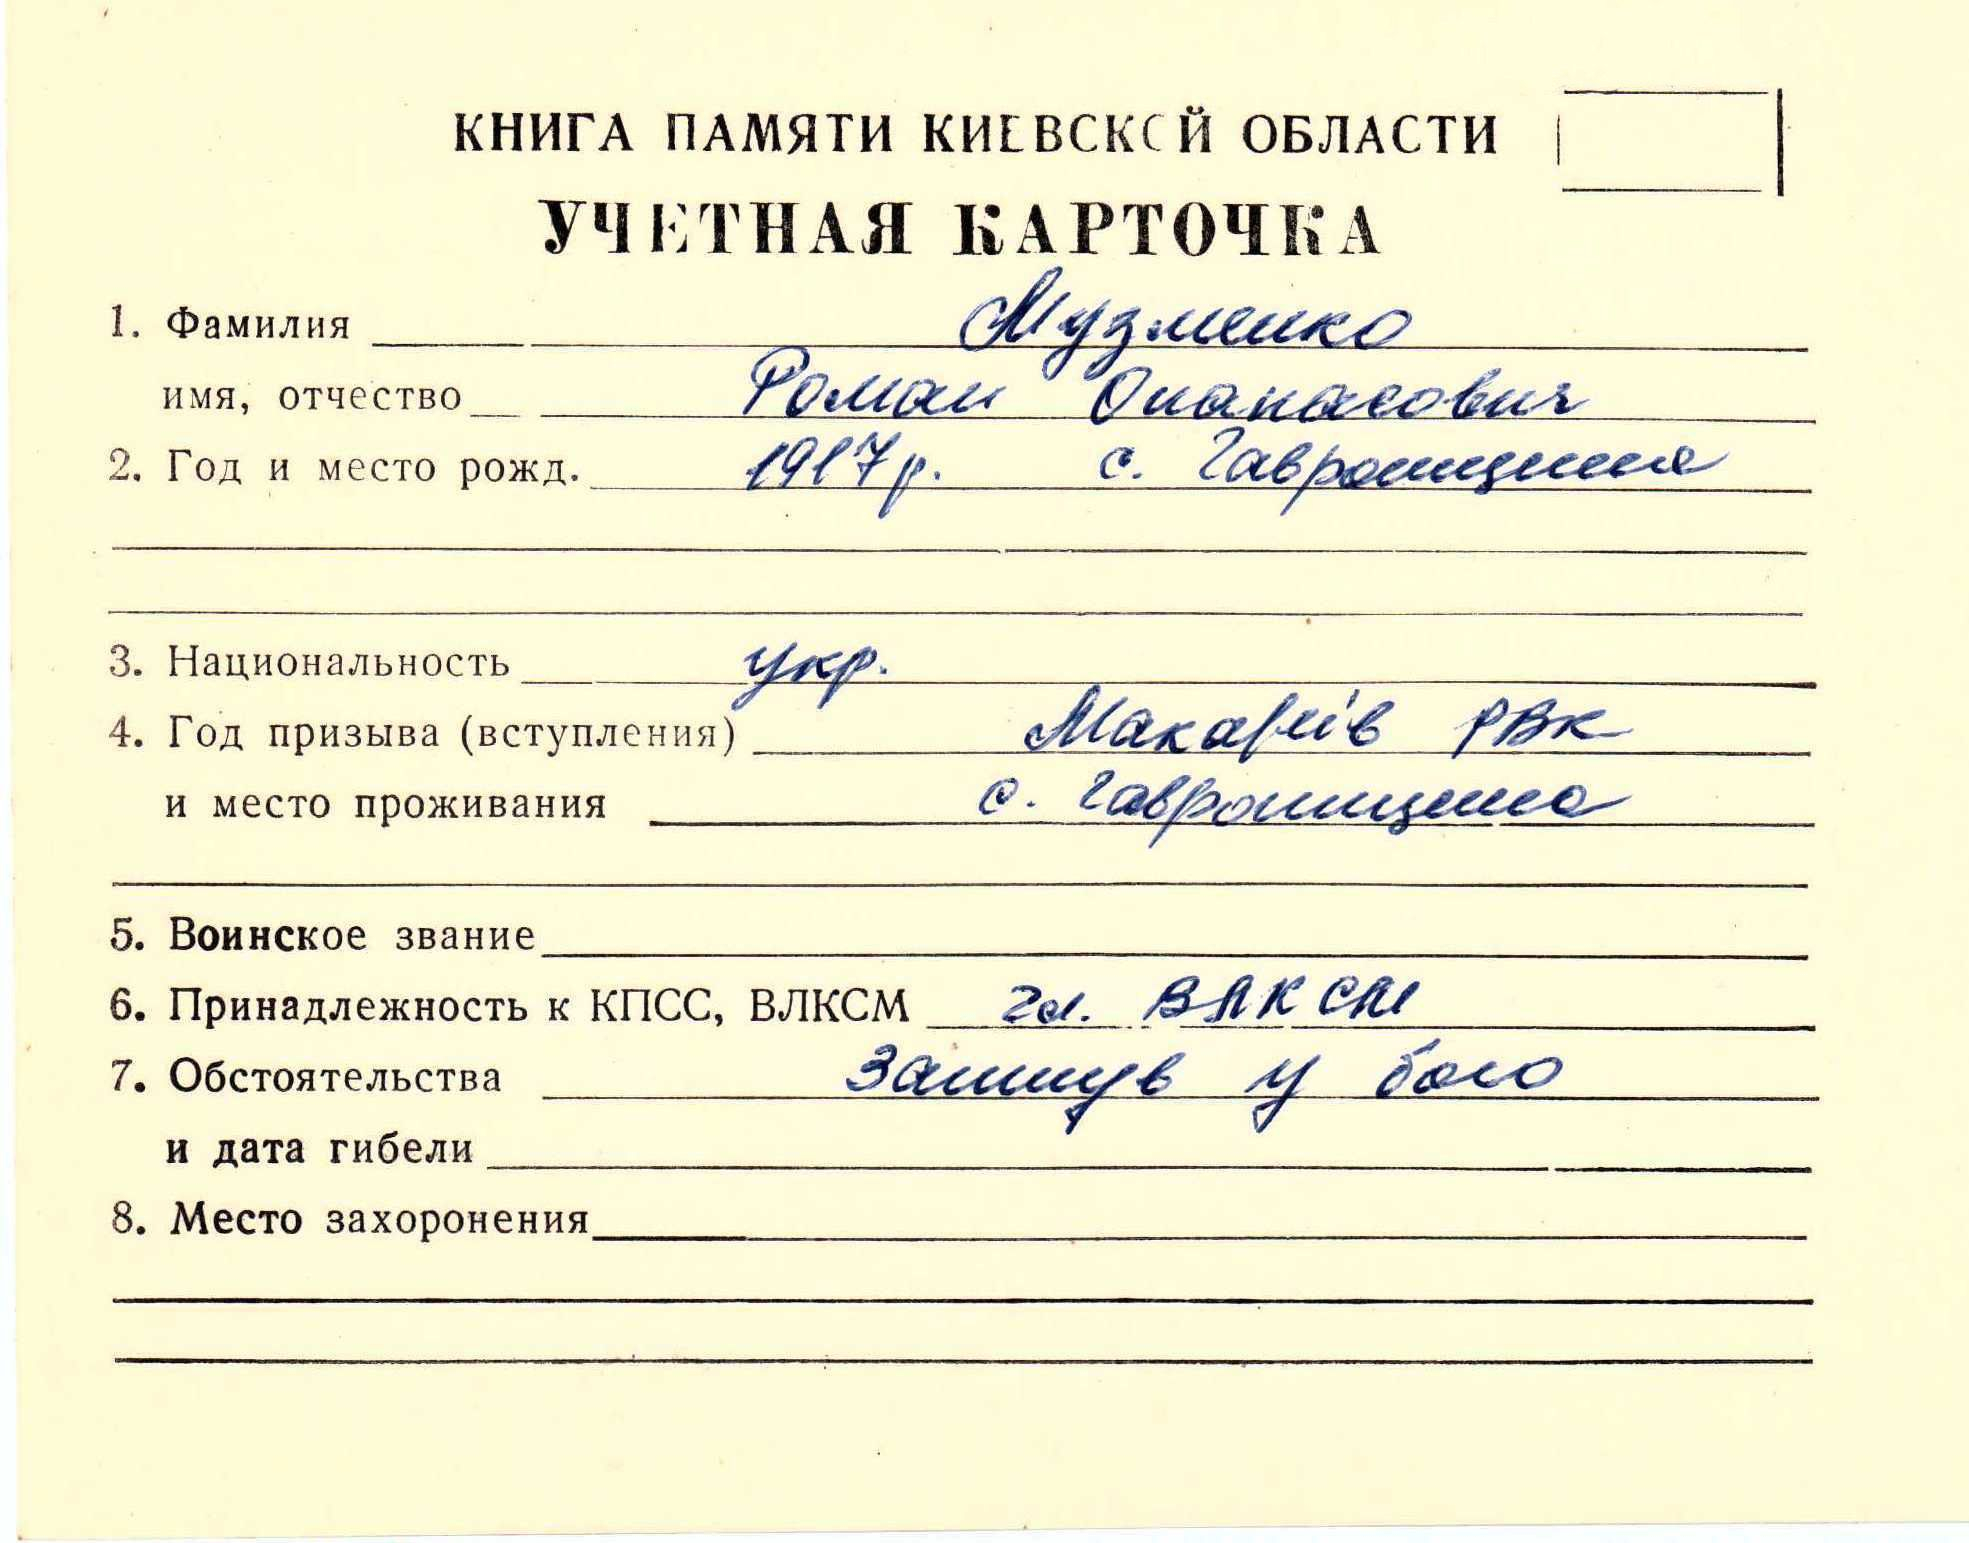 КНИГА ПАМЯТИ КИЕВСКОЙ ОБЛАСТИ
УЧЕТНАЯ КАРТОЧКА
1. Фамилия Музменко
имя, отчество Роман Опанасович
2. Год и место рожд. 1917 р. с. Гавронщина
3. Национальность укр.
4. Год призыва (вступления) Макарів РВК
и место проживания с. Гавронщина
5. Воинское звание
6. Принадлежность к КПСС, ВЛКСМ чл. ВЛКСМ
7. Обстоятельства Загинув у бою
и дата гибели
8. Место захоронения